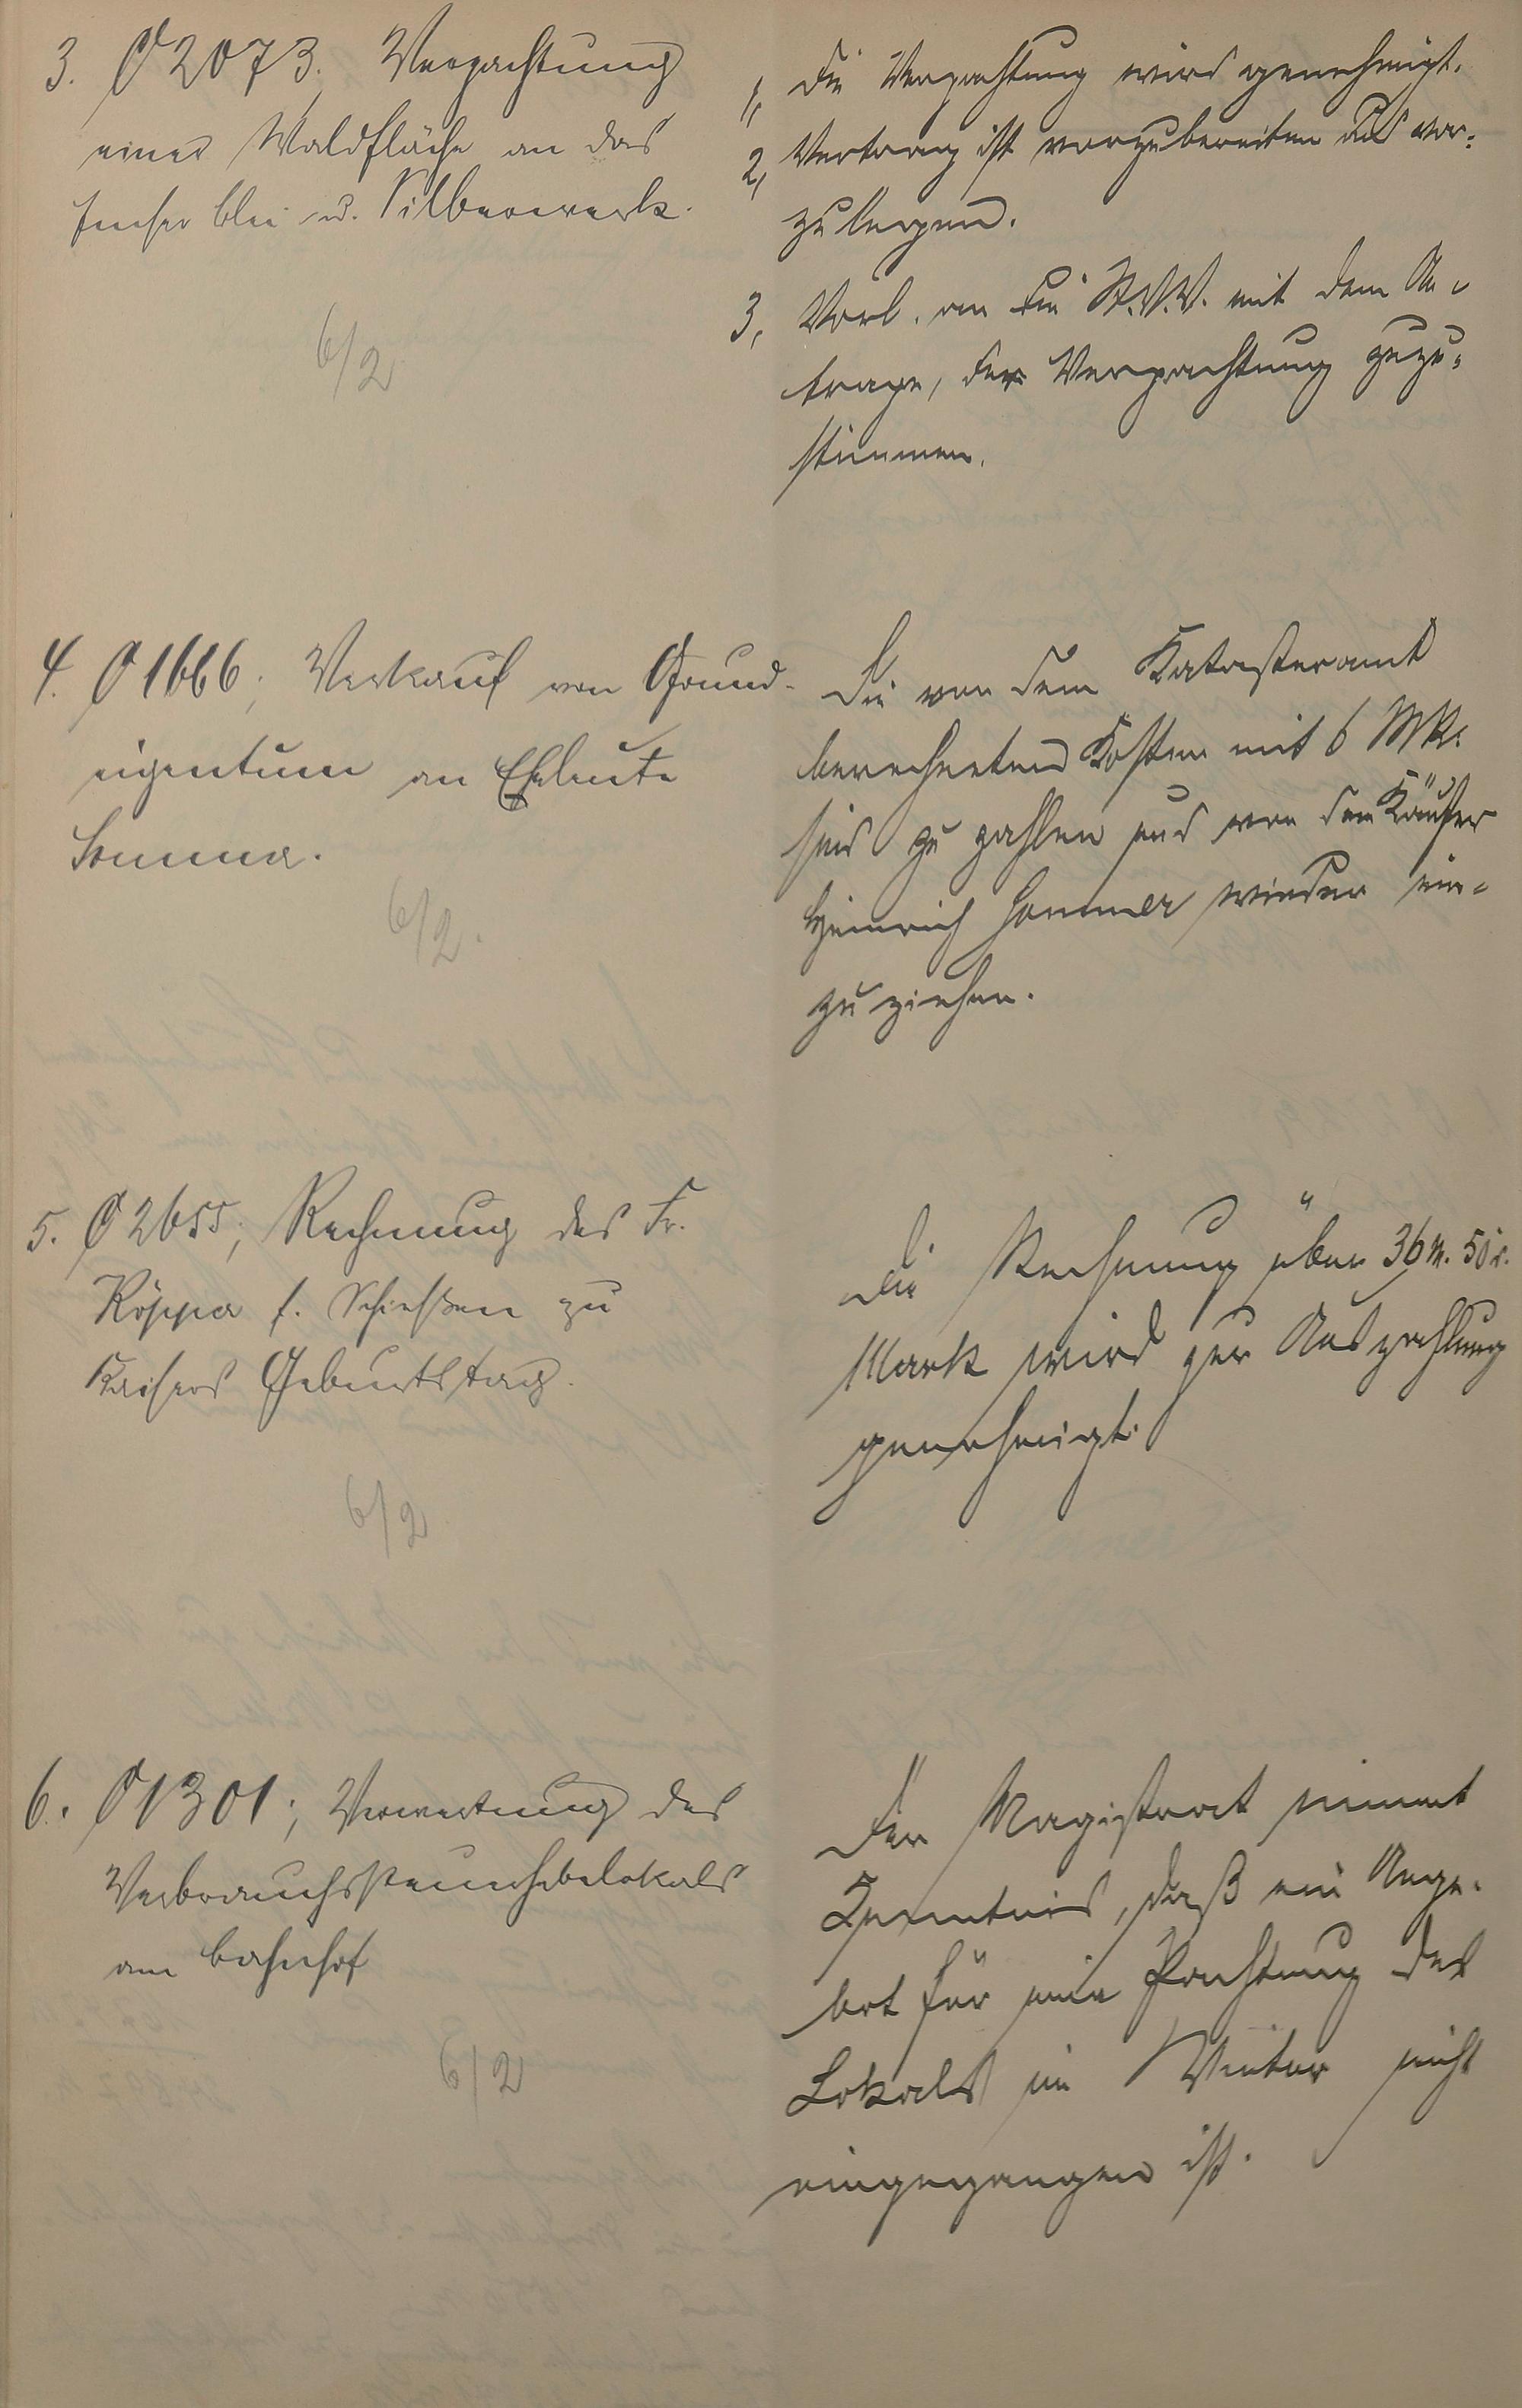 3. O 2073. Verpachtung
einer Waldfläche an das
Emser Blei- u. Silberwerk.
6/2
1, Die Verpachtung wird genehmigt.
2, Vertrag ist vorzubereiten und vor-
zulegen.
3, Vorl. an die St.V.V. mit dem An-
trage, der Verpachtung zuzu-
stimmen.
4. O 1666; Verkauf von Grund-
eigentum an Eheleute
Sommer.
6/2.
Die von dem Katasteramt
berechneten Kosten mit 6 Mk.
sind zu zahlen und von dem Käufer
Heinrich Sommer wieder ein-
zuziehen.
5. O 2655; Rechnung des Fr.
Köpper f. Schießen zu
Kaisers Geburtstag.
6/2
Die Rechnung über 36 M. 50
Mark wird zur Auszahlung
genehmigt.
6. O 1301; Verwertung des
Verbrauchssteuerhebelokals
am Bahnhof
6/2
Der Magistrat nimmt
Kenntnis, daß ein Ange-
bot für eine Pachtung des
Lokals im Winter nicht
eingegangen ist.